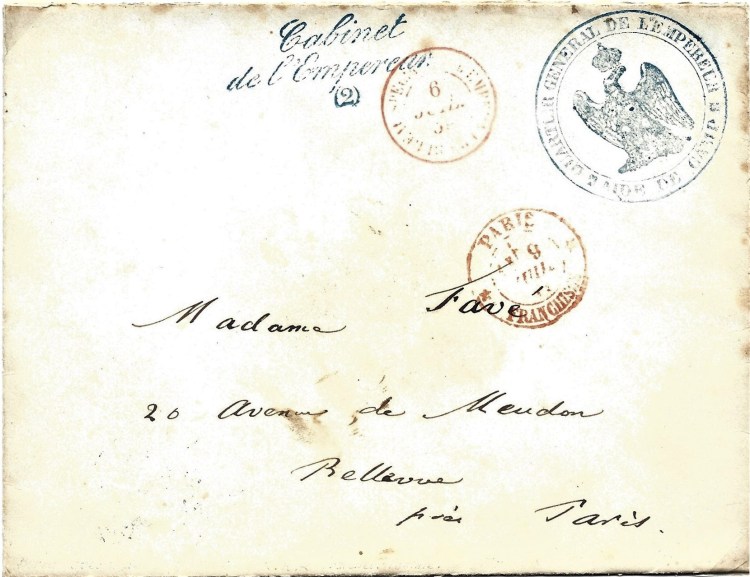 Cabinet
de l'Empereur
(2)
QUARTIER GENERAL DE L'EMPEREUR
AIDE DE CAMP
6
JUIL
PARIS
9
JUIL
FRANCHISE
Madame Favé
20 Avenue de Meudon
Bellevue
près Paris.